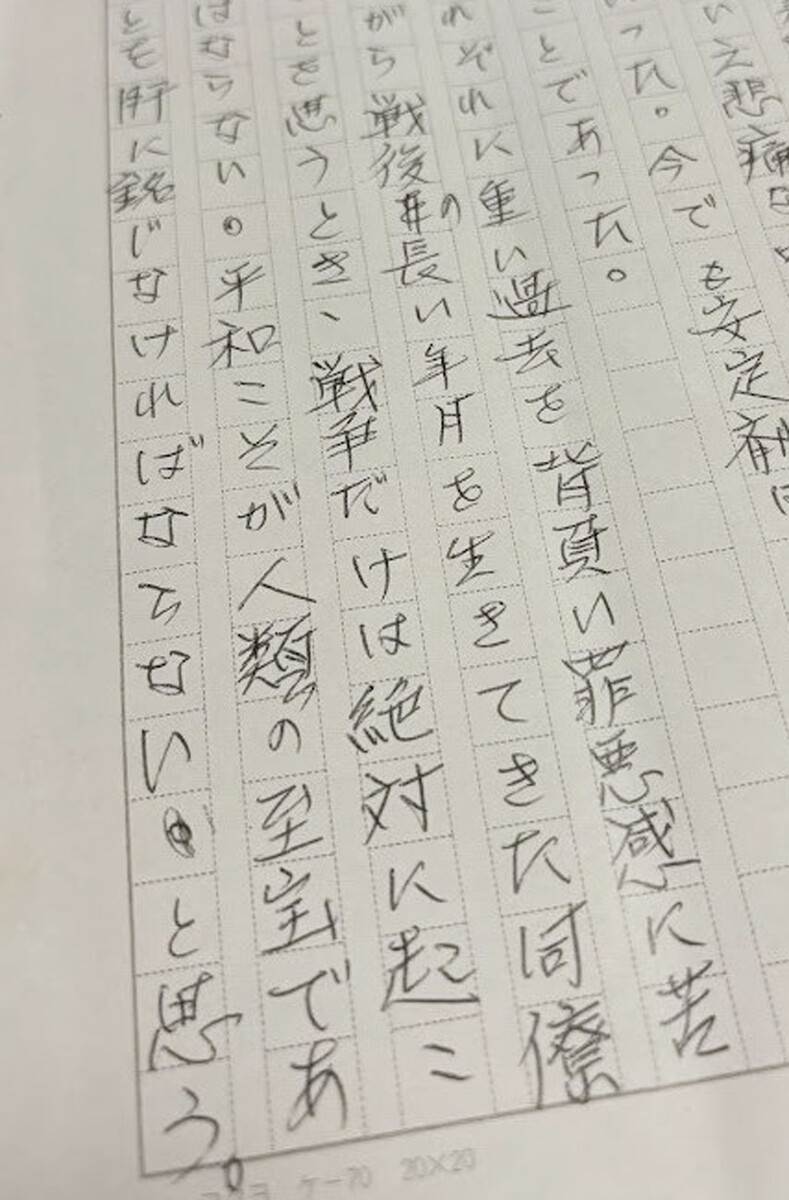 いえ悲痛な
った。今でも安定剤は
ことであった。
れぞれに重い過去を背負い罪悪感に苦
がら戦後の長い年月を生きてきた同僚
とを思うとき、戦争だけは絶対に起こ
はならない。平和こそが人類の至宝であ
とも肝に銘じなければならない。と思う。
コクヨ ケー70 20×20